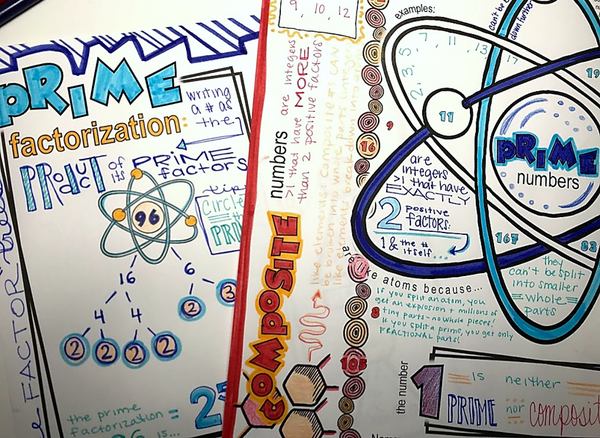 PRIME
factorization:
writing
a # as
the
PRODUCT of its PRIME
factors
tip:
Circle
the
PRIM
FACTOR
96
16
6
4
4
2
3
2
2
2
2
the prime
factorization =
96 is...
2⁵
9, 10, 12
COMPOSITE
numbers
are integers
>1 that have MORE
than 2 positive factors
16
9
8
105
examples:
2, 3, 5, 7, 11, 13, 17
19
11
167
83
can't be
down further
PRIME
numbers
are
INTEGERS
>1 that have
EXACTLY
2 positive
factors:
1 & the #
itself...
they
can't be split
into smaller
=whole=
parts
are like atoms because...
IF you split an atom, you
get an explosion & millions of
tiny parts - no whole pieces!
If you split a prime, you get only
FRACTIONAL parts!
the number
1
is neither
PRIME nor composit